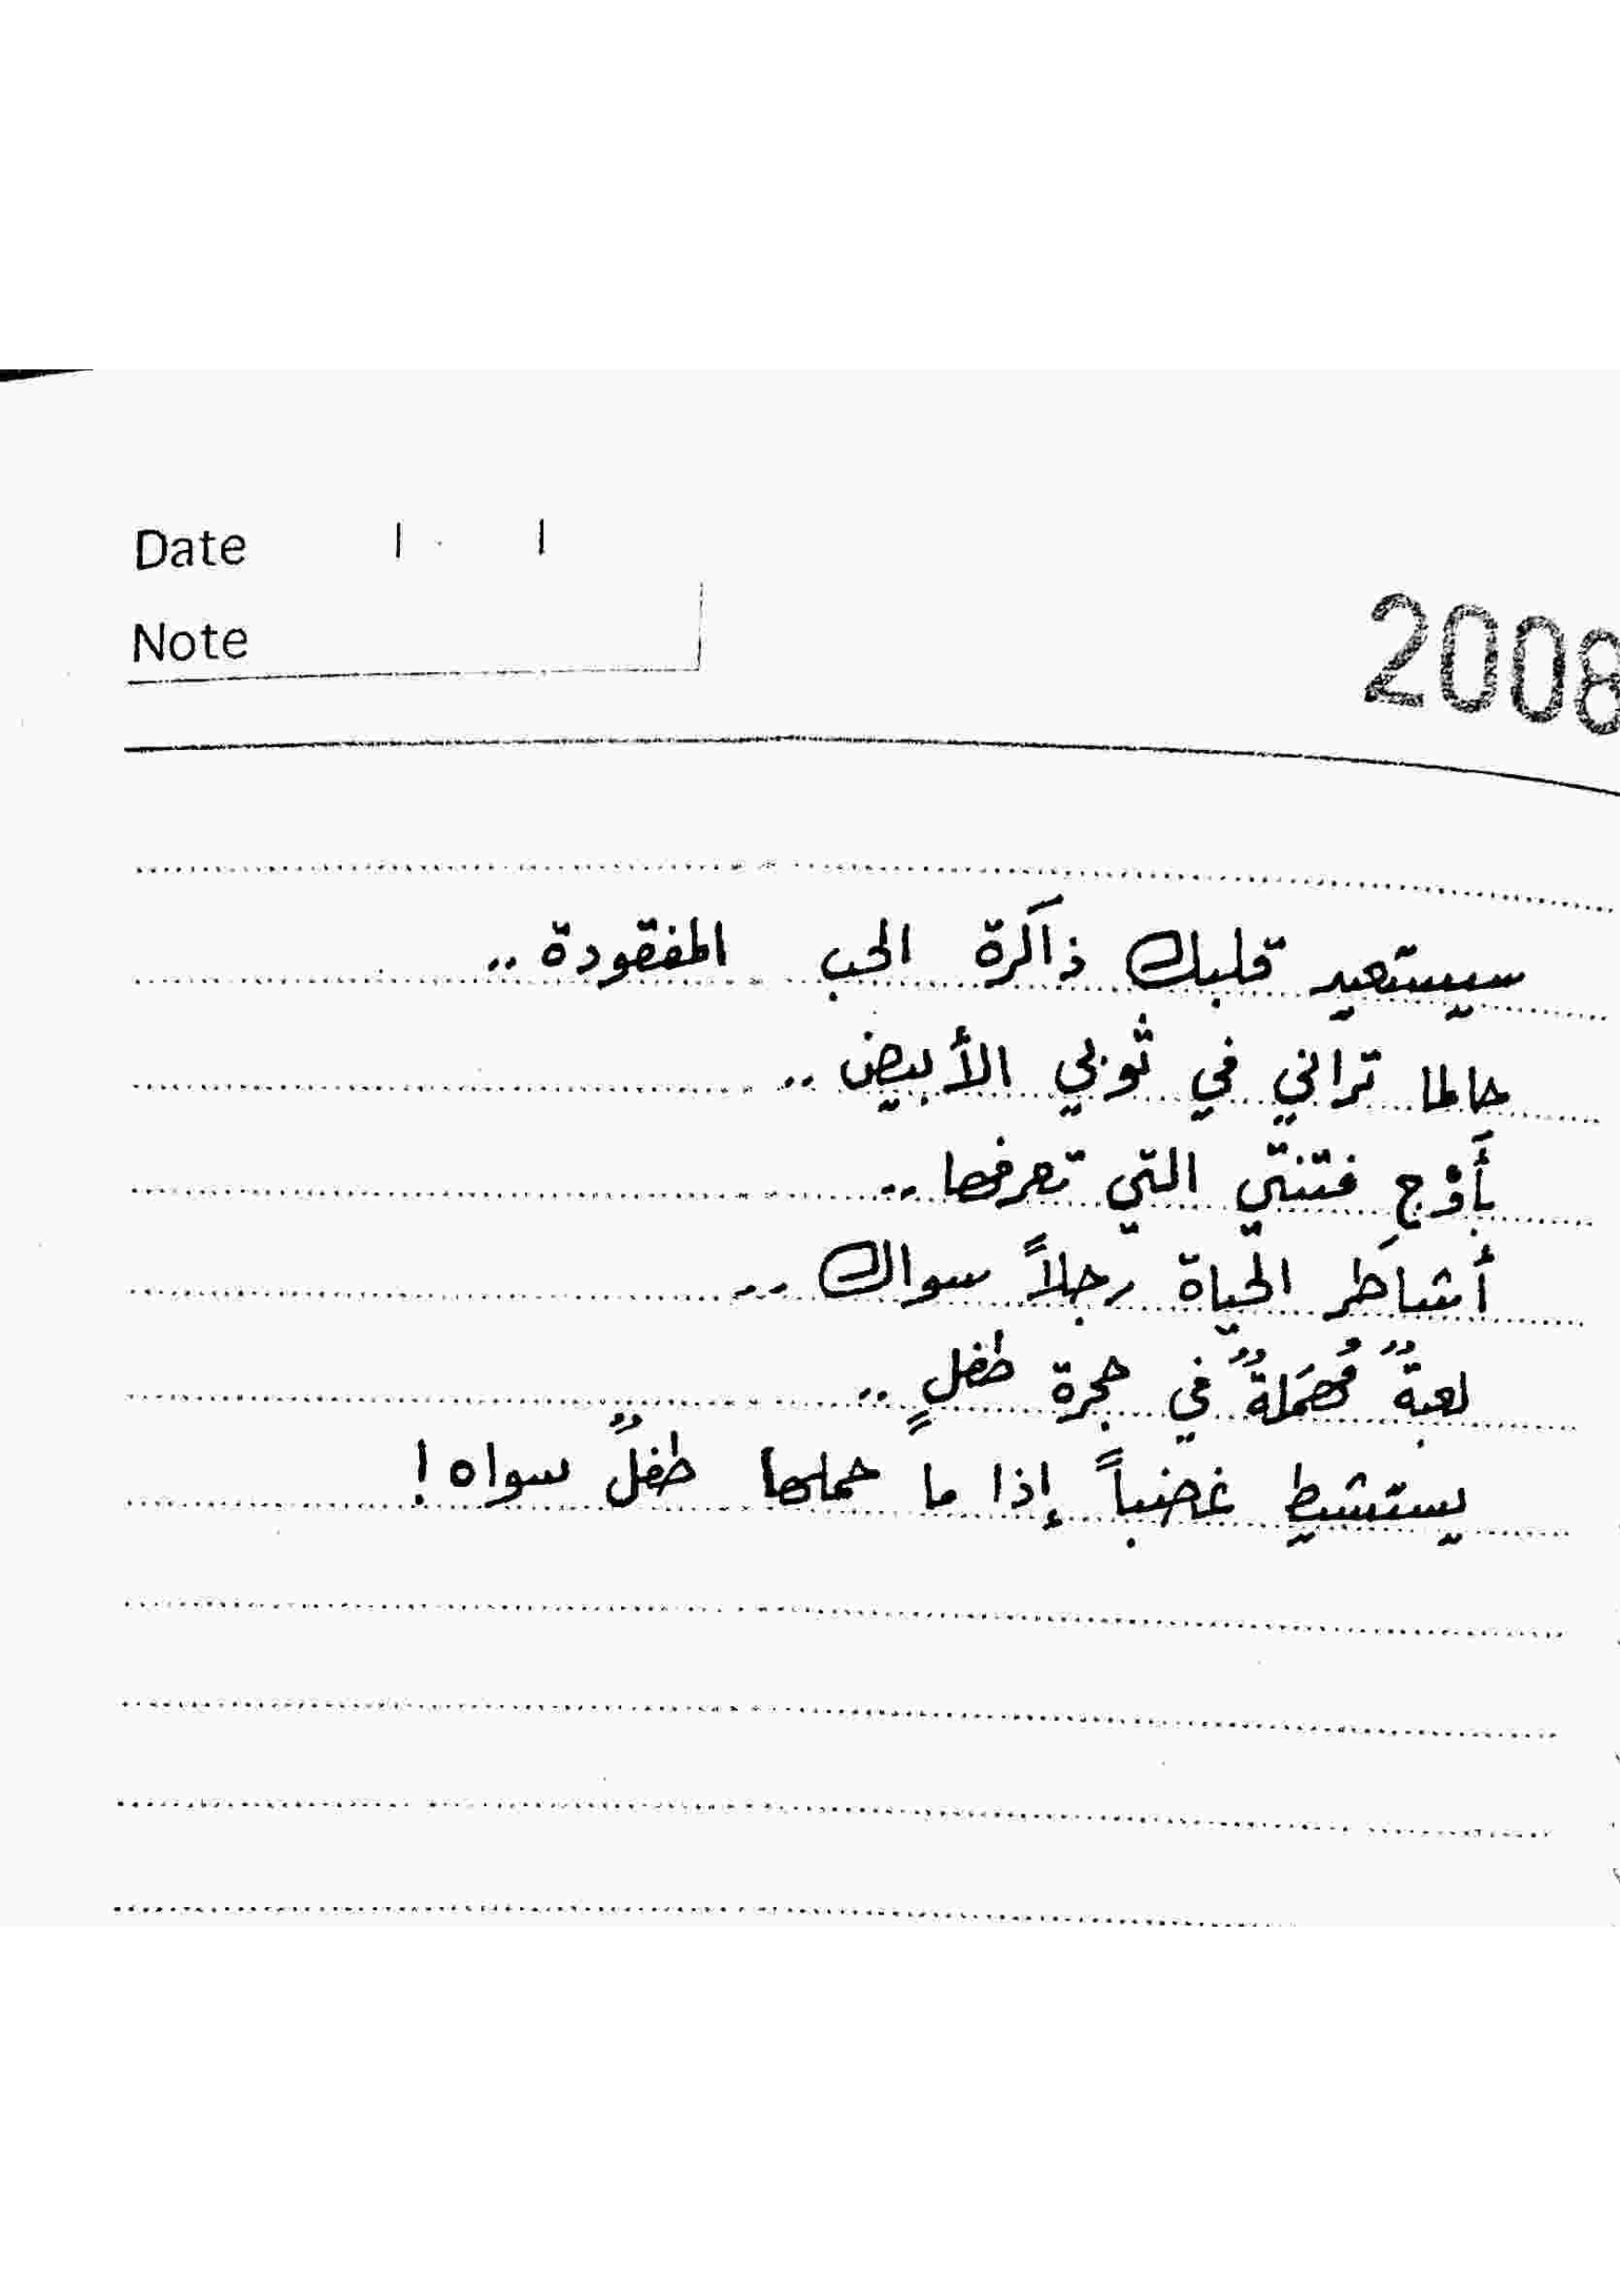 Date / /
Note
2008
سيستعيد قلبك ذاكَرة الحب المفقودة ..
حالما تراني في ثوبي الأبيض ..
بأَوْجِ فتنتي التي تعرفها ..
أشاطِر الحياة رجلاً سواك ..
لعبةٌ مُهمَلةٌ في حجرة طفلٍ ..
يستشيط غضباً إذا ما حملها طفلٌ سواه !